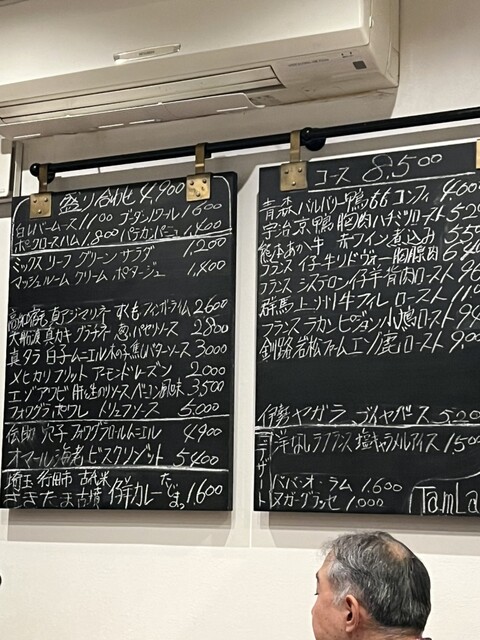 盛り合わせ 4,900
白レバームース 1,100 ゴルゴンゾーラ 1,600
ポークロースハム 1,800 パテカンパーニュ 1,400
ミックスリーフグリーンサラダ 1,200
マッシュルームクリームポタージュ 1,400
真アジマリネ フィンガーライム 2600
大船渡 真カキ グラチネ パセリソース 2800
真タラ白子ムニエル 焦しバターソース 3000
メヒカリフリット アーモンドレーズン 2000
エゾアワビ 肝と のソース ベーコン風味 3,500
フォワグラポワレ トリュフソース 5,000
穴子フォワグラロール ムニエル 4900
オマール海老 ビスク リゾット 5400
埼玉 行田市 古代米
さきたま古墳 仔羊カレーだよっ 1,600
コース 8,500
青森バルバリー鴨66コンフィ 4600
宇治京鴨胸肉ハチミツロースト 52
熊本あか牛 赤ワイン煮込み 55
フランス 仔牛リ・ド・ヴォー胸腺肉 64
フランス シストロン仔羊背肉ロースト
群馬 上州牛フィレ ロースト
フランス ラカン ピジョン小鳩ロースト
釧路 岩松ファーム エゾ鹿ロースト
伊勢 ヤガラ ブイヤベース 520
デザート
洋なしラフランス 塩キャラメルアイス 150
ババ・オ・ラム 1,600
ヌガーグラッセ 1,000